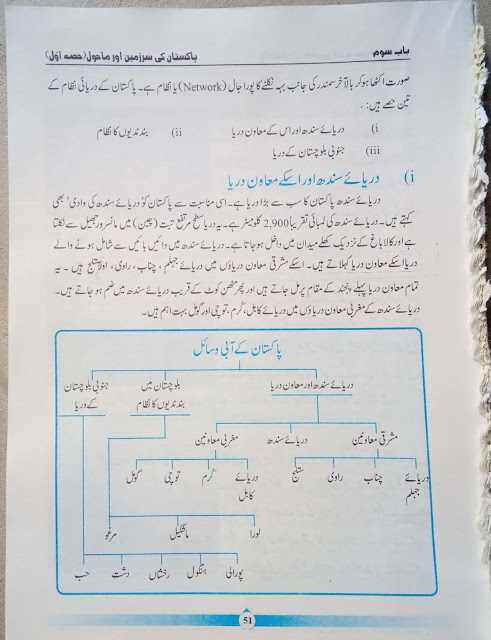 باب سوم
پاکستان کی سرزمین اور ماحول (حصہ اوّل)
صورت اکٹھا ہو کر بالآخر سمندر کی جانب بہہ نکلنے کا پورا جال (Network) یا نظام ہے۔ پاکستان کے دریائی نظام کے
تین حصے ہیں:۔
i) دریائے سندھ اور اس کے معاون دریا ii) بند ندیوں کا نظام
iii) جنوبی بلوچستان کے دریا
i) دریائے سندھ اور اسکے معاون دریا
دریائے سندھ پاکستان کا سب سے بڑا دریا ہے۔ اسی مناسبت سے پاکستان کو 'دریائے سندھ کی وادی' بھی
کہتے ہیں۔ دریائے سندھ کی لمبائی تقریباً 2,900 کلومیٹر ہے۔ یہ دریا سطح مرتفع تبت (چین) میں مانسرور جھیل سے نکلتا
ہے اور کالا باغ کے نزدیک کھلے میدان میں داخل ہو جاتا ہے۔ دریائے سندھ میں دائیں بائیں سے شامل ہونے والے
دریا اسکے معاون دریا کہلاتے ہیں۔ اسکے مشرقی معاون دریاؤں میں دریائے جہلم، چناب، راوی، اور ستلج ہیں۔ یہ
تمام معاون دریا پہلے پنجند کے مقام پر مل جاتے ہیں اور پھر مٹھن کوٹ کے قریب دریائے سندھ میں ضم ہو جاتے ہیں۔
دریائے سندھ کے مغربی معاون دریاؤں میں دریائے کابل، کُرم، توچی اور گومل بہت اہم ہیں۔
پاکستان کے آبی وسائل
دریائے سندھ اور معاون دریا
بلوچستان میں بند ندیوں کا نظام
جنوبی بلوچستان کے دریا
مشرقی معاونین
دریائے سندھ
مغربی معاونین
دریائے جہلم
چناب
راوی
ستلج
دریائے کابل
کُرم
توچی
گومل
لورا
ماشکیل
مرغو
پورالی
ہنگول
رخشاں
دشت
حب
51